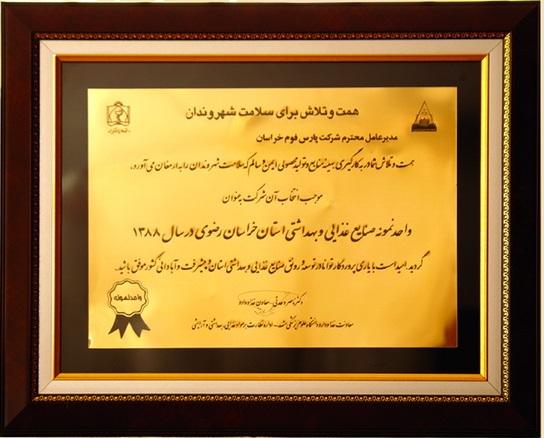 همت و تلاش برای سلامت شهروندان
مدیرعامل محترم شرکت پارس فوم خراسان
همت و تلاش شما در به کارگیری بهینه منابع و تولید محصولی ایمن و سالم که سلامت شهروندان را به ارمغان می آورد،
موجب انتخاب آن شرکت به عنوان
واحد نمونه صنایع غذایی و بهداشتی استان خراسان رضوی در سال ۱۳۸۸
گردید. امید است با یاری پروردگار توانا در توسعه و رونق صنایع غذایی و بهداشتی استان و پیشرفت و آبادانی کشور موفق باشید.
واحد نمونه
دکتر - معاون غذا و دارو
معاونت غذا و دارو دانشگاه علوم پزشکی مشهد - اداره نظارت بر مواد غذایی، بهداشتی و آرایشی